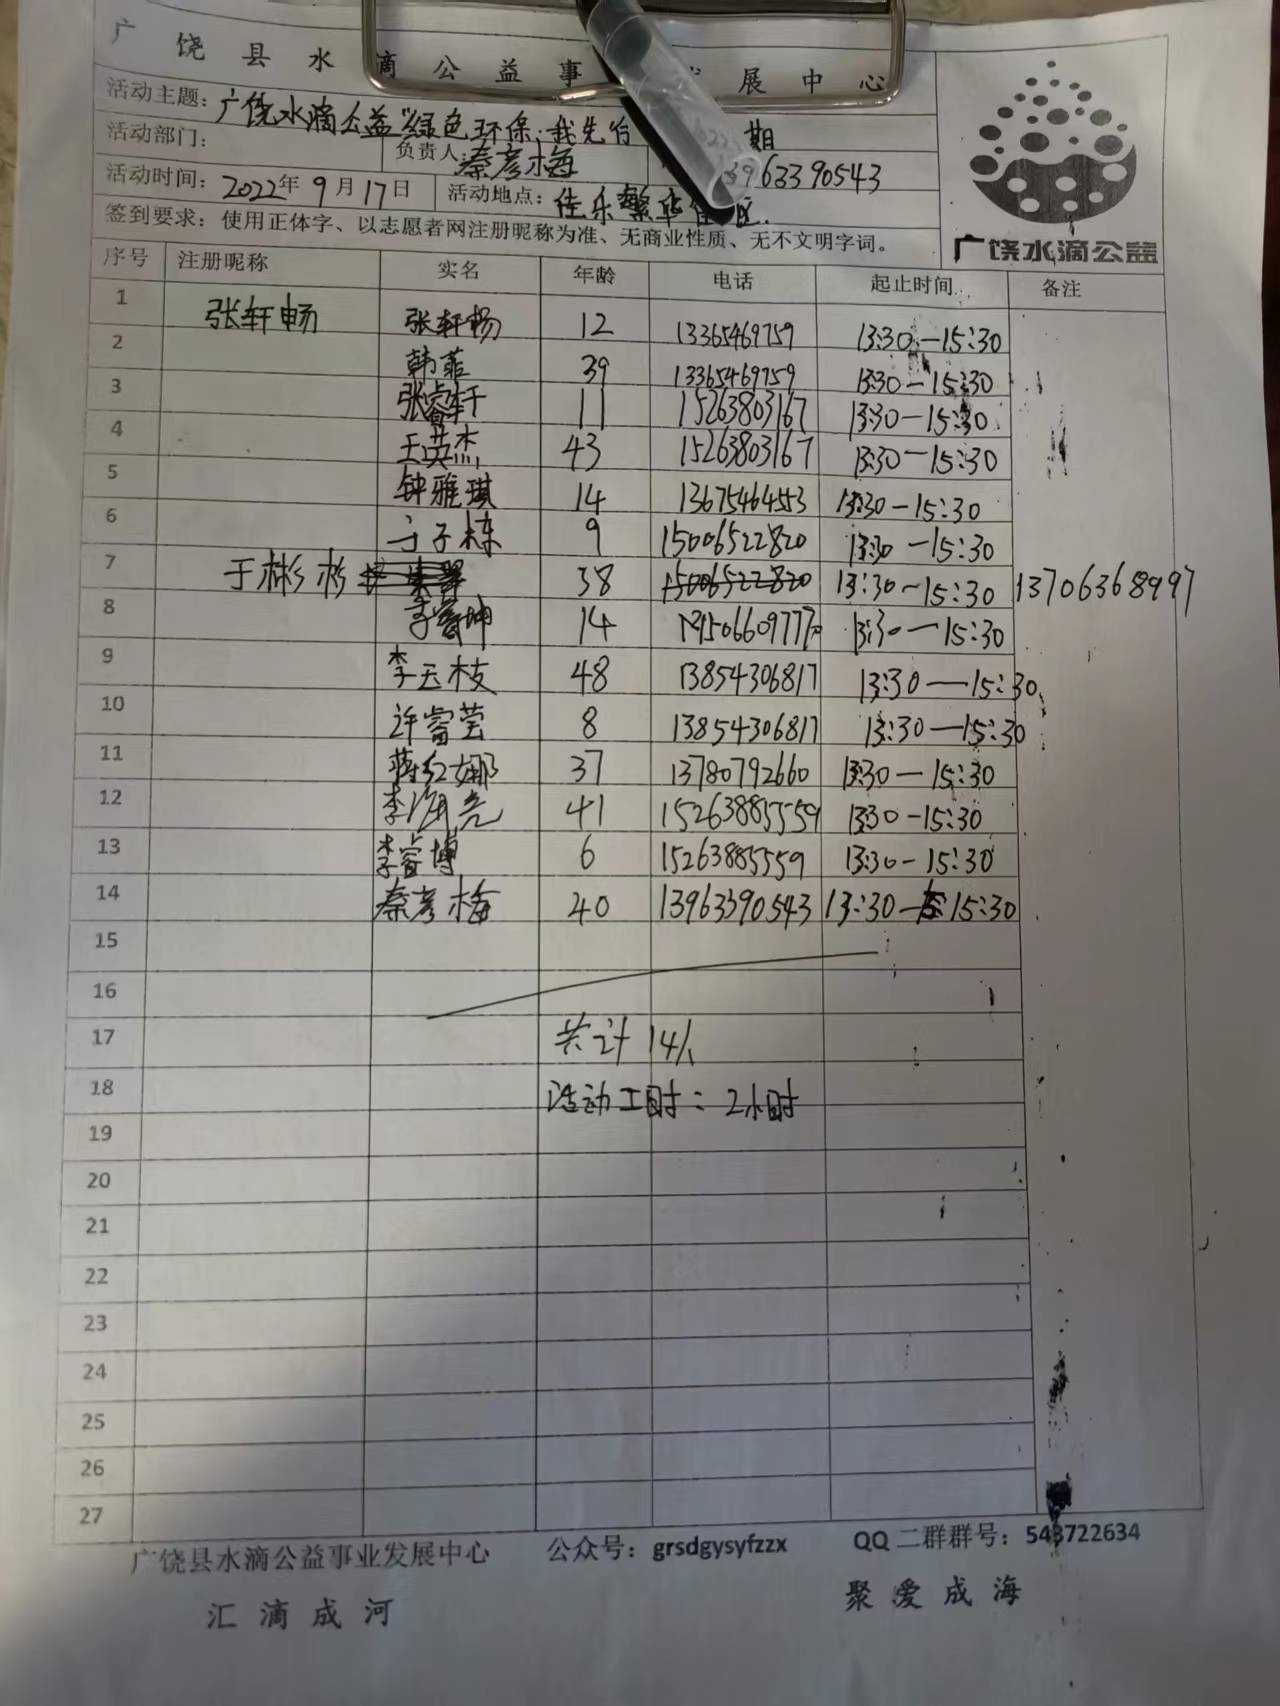 广饶县水滴公益事 展中心
活动主题：广饶水滴公益"绿色环保，我先行 期
活动部门： 负责人：秦彦梅 13963390543
活动时间：2022年9月17日 活动地点：佳乐繁华 区.
签到要求：使用正体字、以志愿者网注册昵称为准、无商业性质、无不文明字词。
广饶水滴公益
序号 注册昵称 实名 年龄 电话 起止时间 备注
1 张轩畅 张轩畅 12 13365469759 13:30—15:30
2 韩菲 39 13365469759 13:30—15:30
3 张睿轩 11 15263803167 13:30—15:30
4 王英杰 43 15263803167 13:30—15:30
5 钟雅琪 14 13675464553 13:30—15:30
6 于子栋 9 15006522820 13:30—15:30
7 于彬彬 38 15006522820 13:30—15:30 13706368997
8 李睿坤 14 13:30—15:30
9 李玉枝 48 13854306817 13:30—15:30
10 许睿莹 8 13854306817 13:30—15:30
11 蒋红娜 37 13780792660 13:30—15:30
12 李海亮 41 15263885559 13:30—15:30
13 李睿博 6 15263885559 13:30—15:30
14 秦彦梅 40 13963390543 13:30—15:30
15
16
17 共计14人
18 活动工时：2小时
19
20
21
22
23
24
25
26
27
广饶县水滴公益事业发展中心 公众号：grsdgysyfzzx QQ二群群号：543722634
汇滴成河 聚爱成海